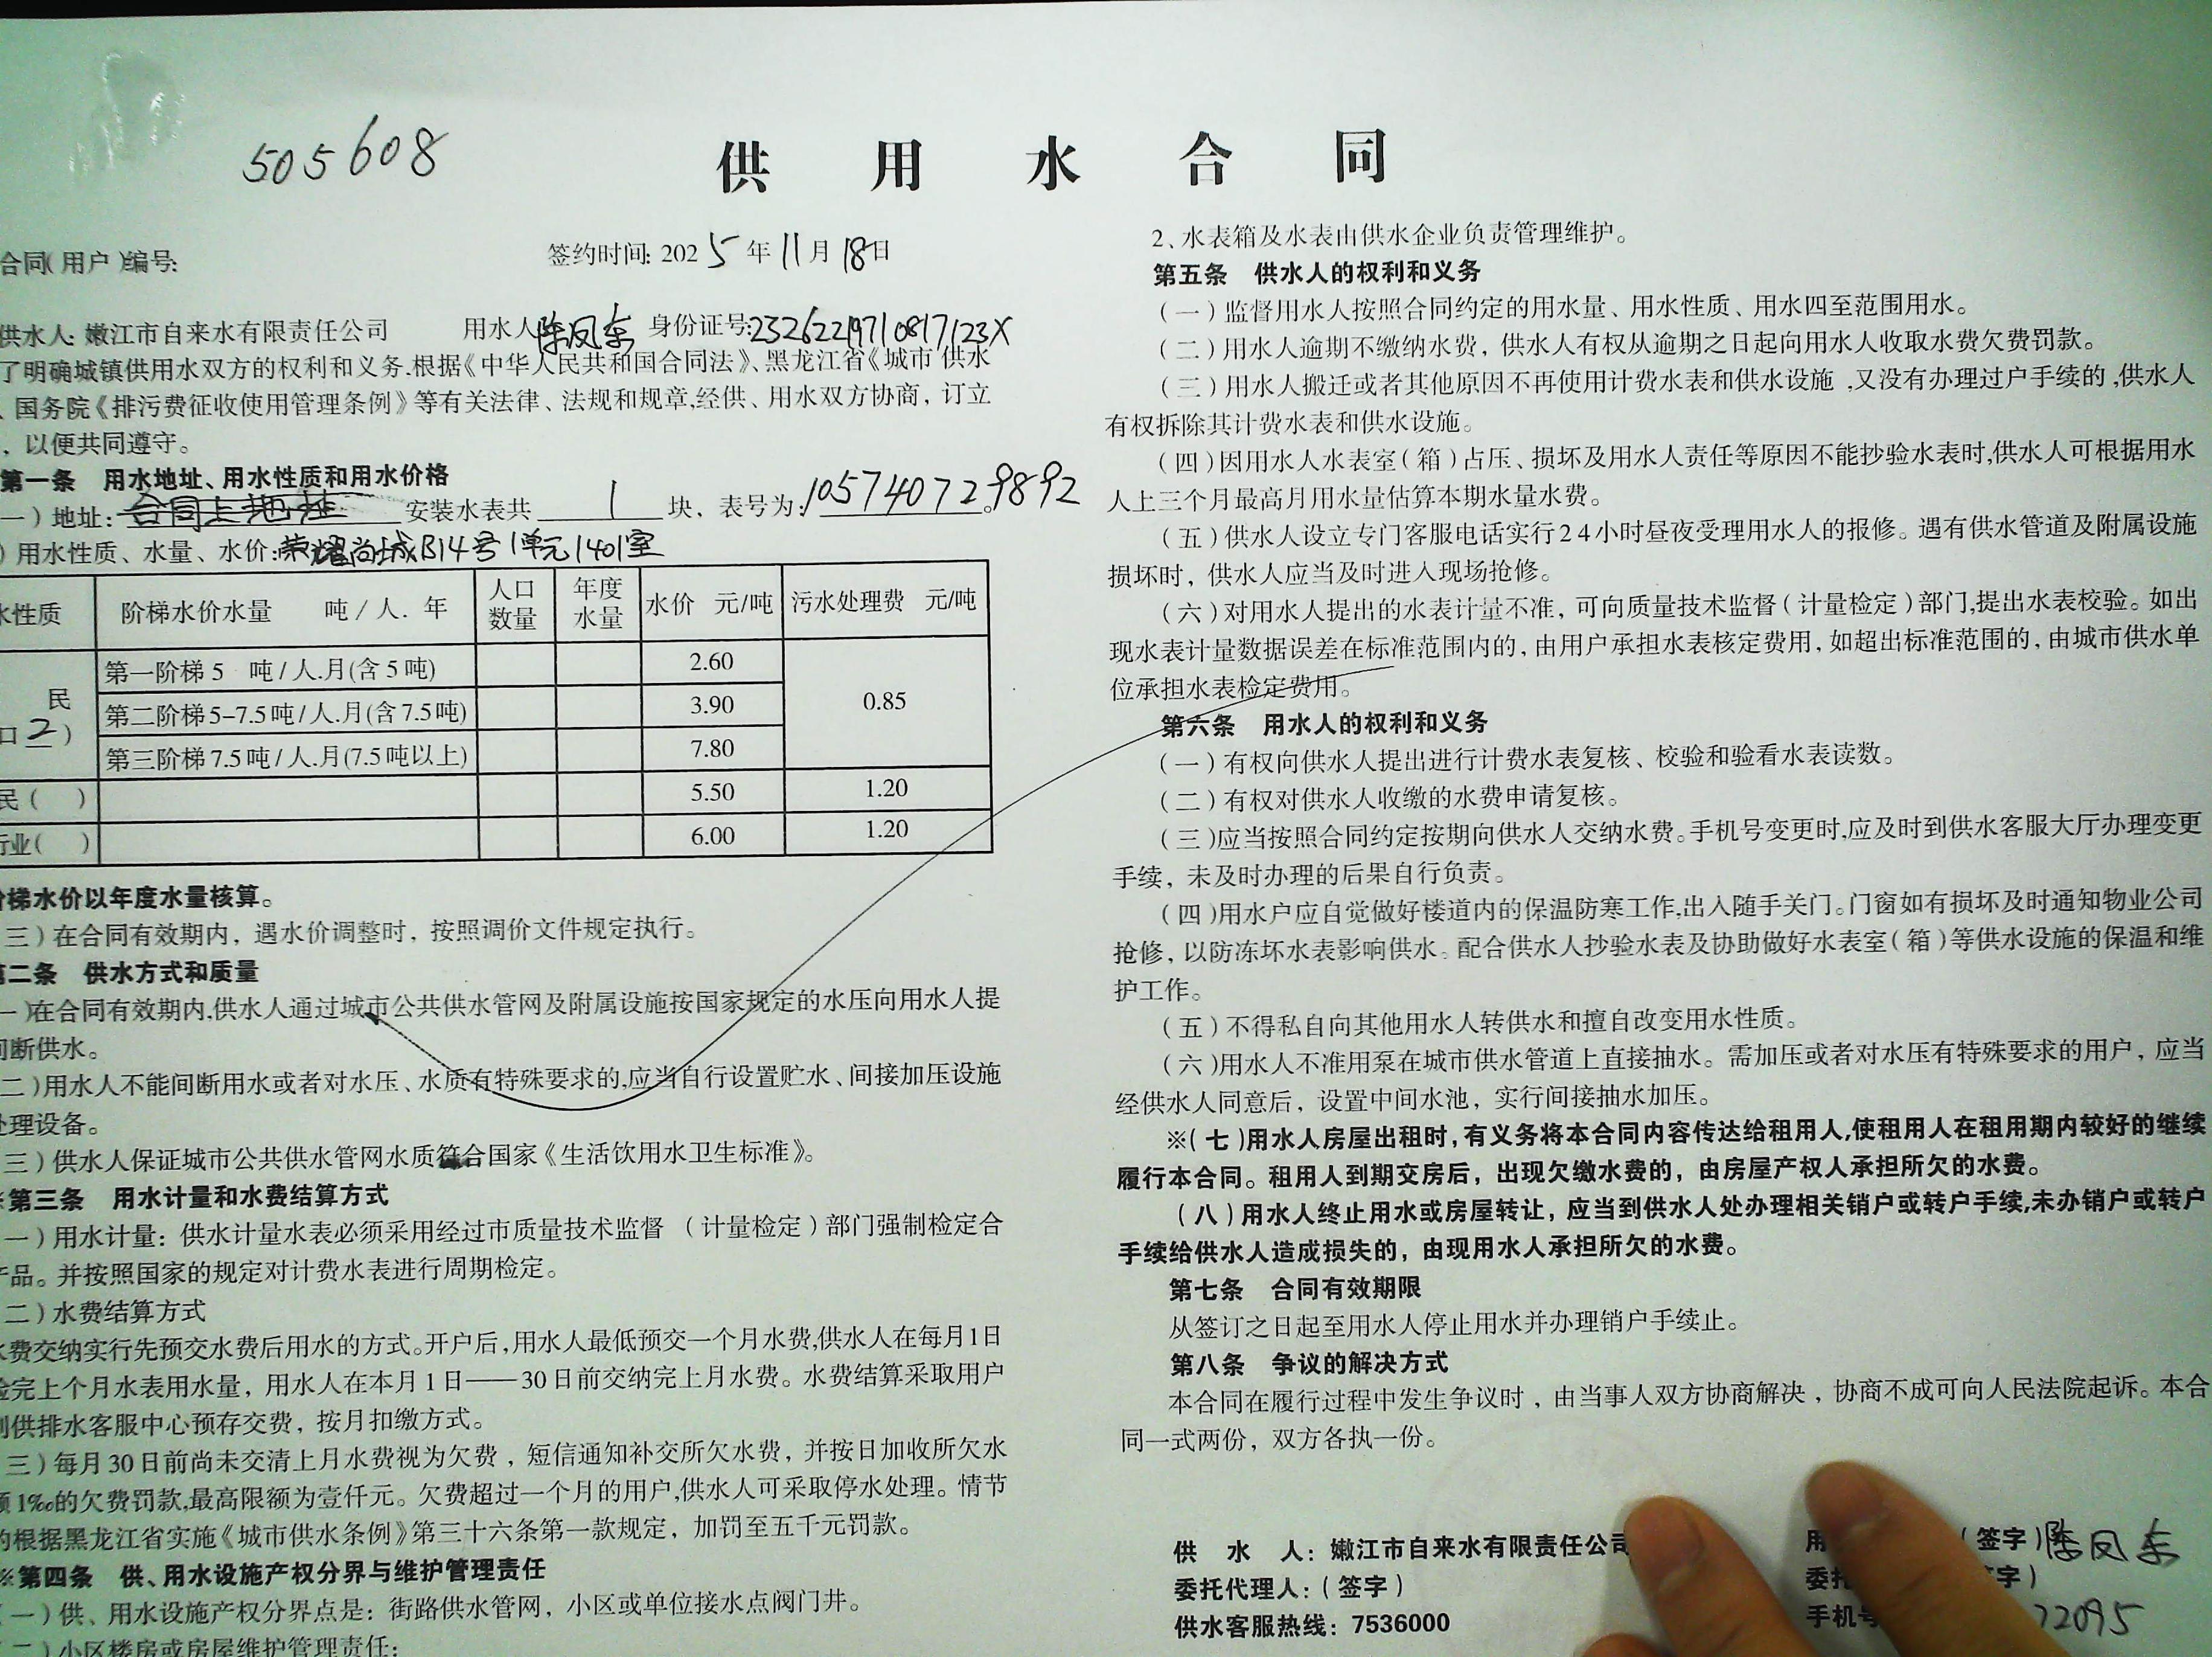 505608
供用水合同
合同(用户)编号:
签约时间: 2025年11月18日
供水人: 嫩江市自来水有限责任公司 用水人 陈凤东 身份证号:
了明确城镇供用水双方的权利和义务.根据《中华人民共和国合同法》、黑龙江省《城市供水
、国务院《排污费征收使用管理条例》等有关法律、法规和规章,经供、用水双方协商，订立
，以便共同遵守。
第一条 用水地址、用水性质和用水价格
一）地址：合同上地址 安装水表共 1 块，表号为：105740729892。
）用水性质、水量、水价:荣耀尚城B14号1单元1401室
水性质 阶梯水价水量 吨/人.年 人口数量 年度水量 水价 元/吨 污水处理费 元/吨
民
口2）
第一阶梯5 吨/人.月(含5吨) 2.60 0.85
第二阶梯5-7.5吨/人.月(含7.5吨) 3.90
第三阶梯7.5吨/人.月(7.5吨以上) 7.80
民（ ） 5.50 1.20
行业（ ） 6.00 1.20
阶梯水价以年度水量核算。
三）在合同有效期内，遇水价调整时，按照调价文件规定执行。
第二条 供水方式和质量
一)在合同有效期内,供水人通过城市公共供水管网及附属设施按国家规定的水压向用水人提
间断供水。
二)用水人不能间断用水或者对水压、水质有特殊要求的,应当自行设置贮水、间接加压设施
处理设备。
三）供水人保证城市公共供水管网水质符合国家《生活饮用水卫生标准》。
※第三条 用水计量和水费结算方式
一）用水计量：供水计量水表必须采用经过市质量技术监督（计量检定）部门强制检定合
产品。并按照国家的规定对计费水表进行周期检定。
二）水费结算方式
水费交纳实行先预交水费后用水的方式。开户后,用水人最低预交一个月水费,供水人在每月1日
验完上个月水表用水量，用水人在本月1日——30日前交纳完上月水费。水费结算采取用户
到供排水客服中心预存交费，按月扣缴方式。
三）每月30日前尚未交清上月水费视为欠费，短信通知补交所欠水费，并按日加收所欠水
额1‰的欠费罚款,最高限额为壹仟元。欠费超过一个月的用户,供水人可采取停水处理。情节
的根据黑龙江省实施《城市供水条例》第三十六条第一款规定，加罚至五千元罚款。
※第四条 供、用水设施产权分界与维护管理责任
（一）供、用水设施产权分界点是：街路供水管网，小区或单位接水点阀门井。
（二）小区楼房或房屋维护管理责任：
2、水表箱及水表由供水企业负责管理维护。
第五条 供水人的权利和义务
（一）监督用水人按照合同约定的用水量、用水性质、用水四至范围用水。
（二）用水人逾期不缴纳水费，供水人有权从逾期之日起向用水人收取水费欠费罚款。
（三）用水人搬迁或者其他原因不再使用计费水表和供水设施,又没有办理过户手续的,供水人
有权拆除其计费水表和供水设施。
（四）因用水人水表室（箱）占压、损坏及用水人责任等原因不能抄验水表时,供水人可根据用水
人上三个月最高月用水量估算本期水量水费。
（五）供水人设立专门客服电话实行24小时昼夜受理用水人的报修。遇有供水管道及附属设施
损坏时，供水人应当及时进入现场抢修。
（六）对用水人提出的水表计量不准，可向质量技术监督（计量检定）部门,提出水表校验。如出
现水表计量数据误差在标准范围内的，由用户承担水表核定费用，如超出标准范围的，由城市供水单
位承担水表检定费用。
第六条 用水人的权利和义务
（一）有权向供水人提出进行计费水表复核、校验和验看水表读数。
（二）有权对供水人收缴的水费申请复核。
（三)应当按照合同约定按期向供水人交纳水费。手机号变更时,应及时到供水客服大厅办理变更
手续，未及时办理的后果自行负责。
（四)用水户应自觉做好楼道内的保温防寒工作,出入随手关门。门窗如有损坏及时通知物业公司
抢修，以防冻坏水表影响供水。配合供水人抄验水表及协助做好水表室（箱）等供水设施的保温和维
护工作。
（五）不得私自向其他用水人转供水和擅自改变用水性质。
（六)用水人不准用泵在城市供水管道上直接抽水。需加压或者对水压有特殊要求的用户，应当
经供水人同意后，设置中间水池，实行间接抽水加压。
※（七）用水人房屋出租时,有义务将本合同内容传达给租用人,使租用人在租用期内较好的继续
履行本合同。租用人到期交房后，出现欠缴水费的，由房屋产权人承担所欠的水费。
（八）用水人终止用水或房屋转让，应当到供水人处办理相关销户或转户手续,未办销户或转户
手续给供水人造成损失的，由现用水人承担所欠的水费。
第七条 合同有效期限
从签订之日起至用水人停止用水并办理销户手续止。
第八条 争议的解决方式
本合同在履行过程中发生争议时，由当事人双方协商解决，协商不成可向人民法院起诉。本合
同一式两份，双方各执一份。
供 水 人：嫩江市自来水有限责任公司 用 （签字）陈凤东
委托代理人：（签字） 委托 签字）
供水客服热线：7536000 手机号 72095